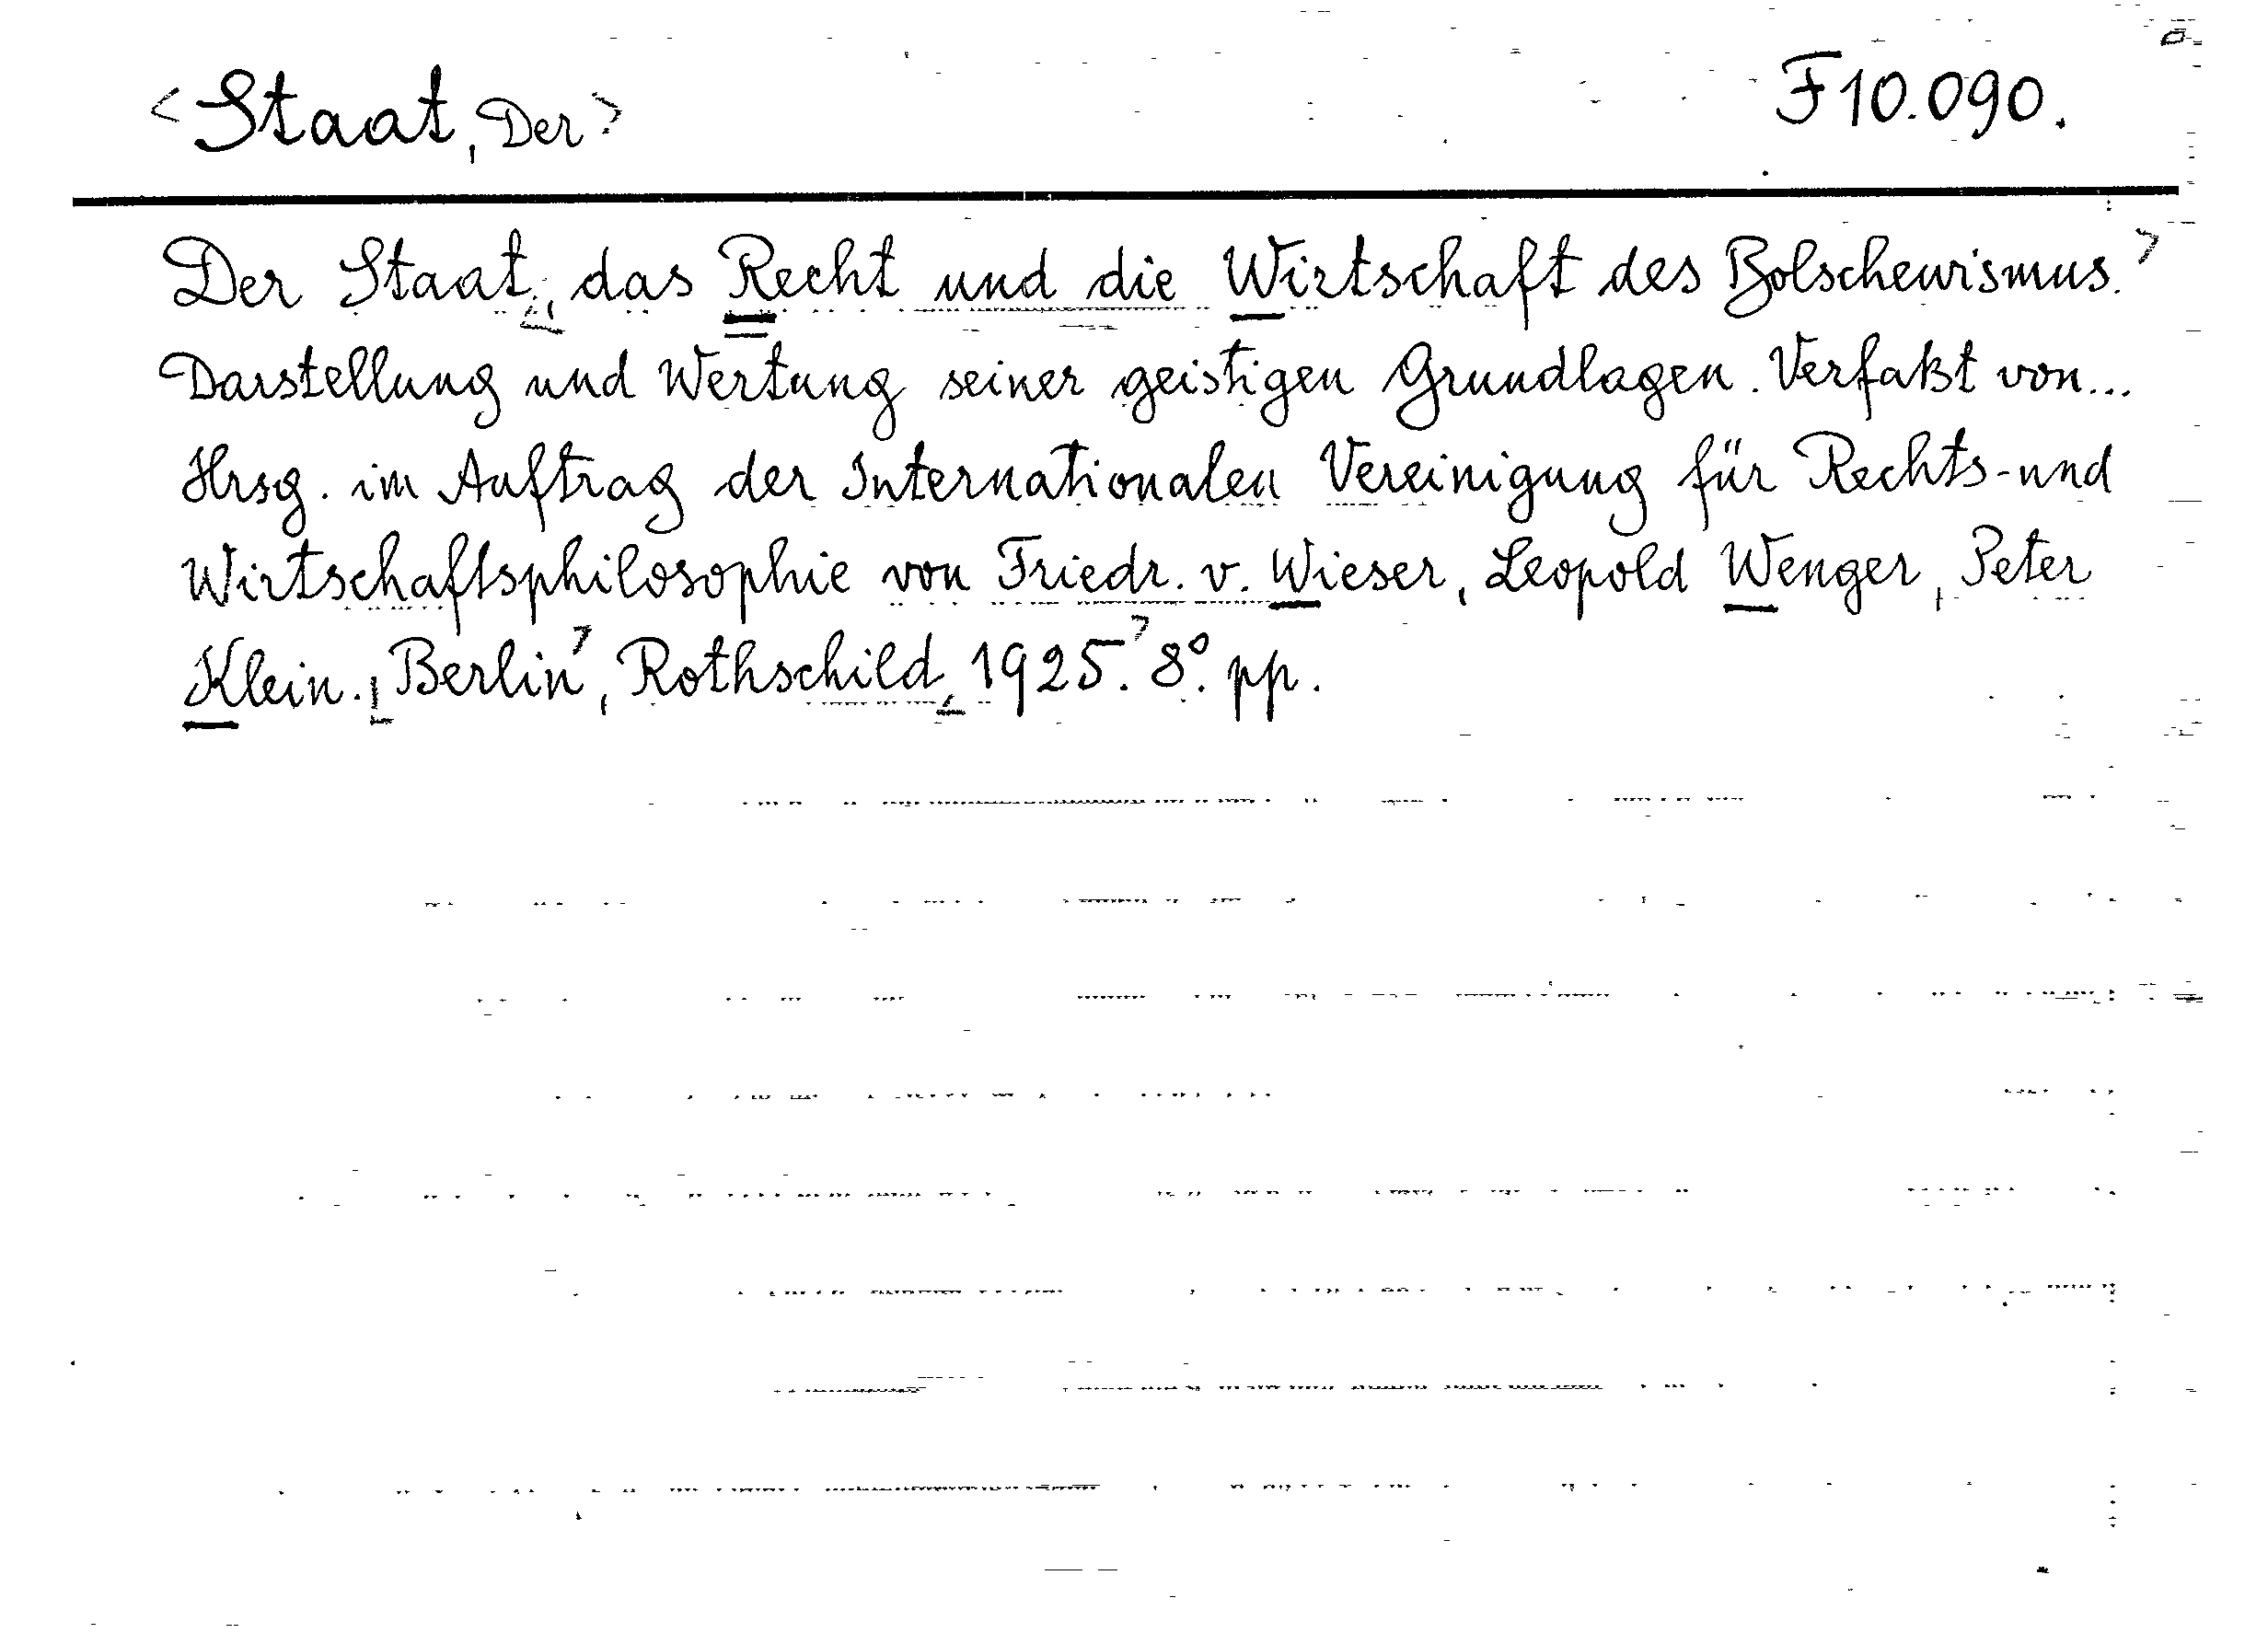 <Staat, Der> F10.090.
Der Staat, das Recht und die Wirtschaft des Bolschewismus.
Darstellung und Wertung seiner geistigen Grundlagen. Verfaßt von...
Hrsg. im Auftrag der Internationalen Vereinigung für Rechts- und
Wirtschaftsphilosophie von Friedr. v. Wieser, Leopold Wenger, Peter
Klein. Berlin, Rothschild, 1925. 8°. pp.